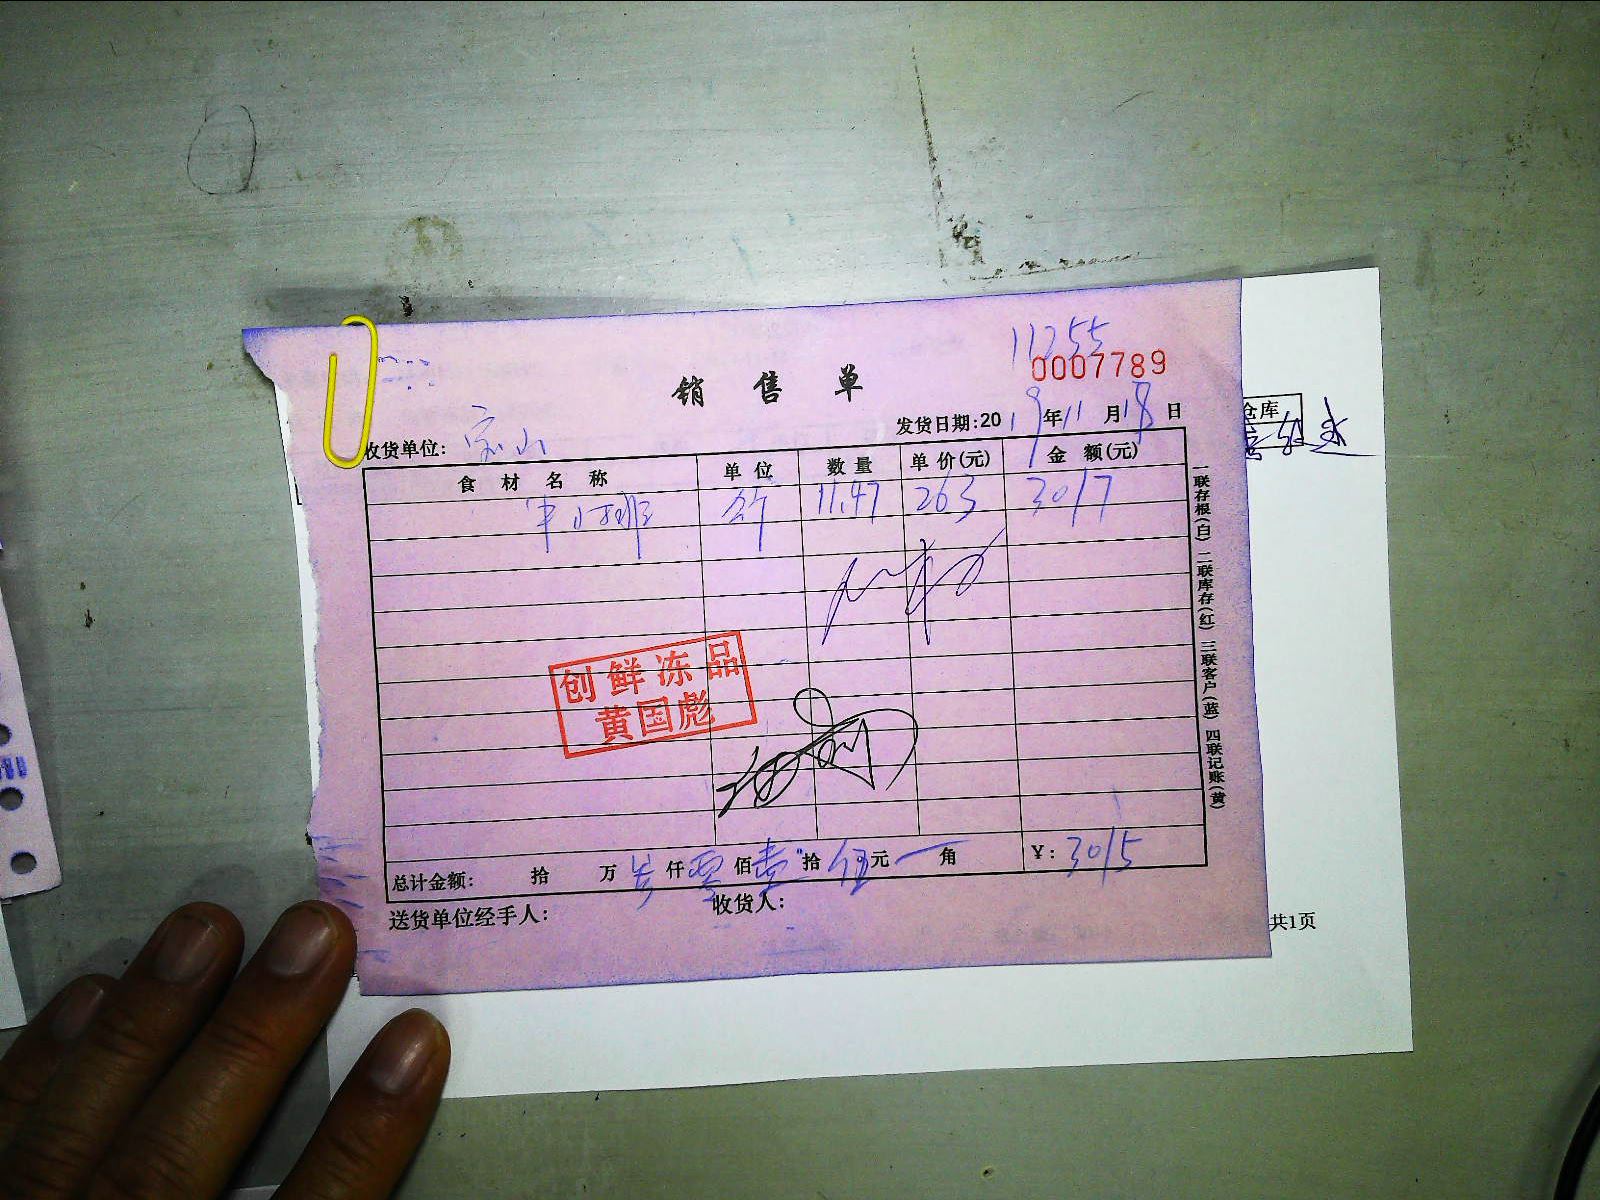 11255
0007789
销售单
发货日期:2019年11月18日
仓库
收货单位:宝山
食材名称 单位 数量 单价(元) 金额(元)
牛小排 斤 11.47 263 3017
创鲜冻品
黄国彪
总计金额: 拾 万 叁仟零佰壹拾伍元一角 ¥:3015
送货单位经手人: 收货人:
一联存根(白) 二联库存(红) 三联客户(蓝) 四联记账(黄)
共1页